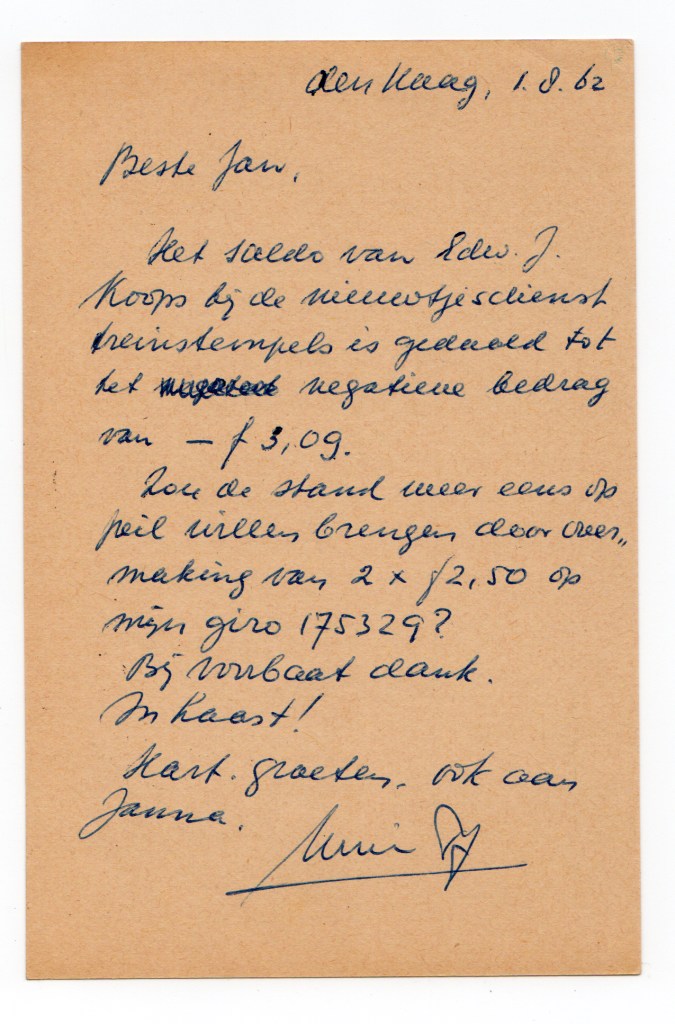 den Haag, 1.8.62
Beste Jan,
Het saldo van Edw. J.
Koops bij de nieuwtjesdienst
treinstempels is gedaald tot
het negatieve bedrag
van — f 3,09.
Zou de stand weer eens op
peil willen brengen door over„
making van 2 x f 2,50 op
mijn giro 175329?
Bij voorbaat dank.
In haast!
Hart. groeten, ook aan
Janna.